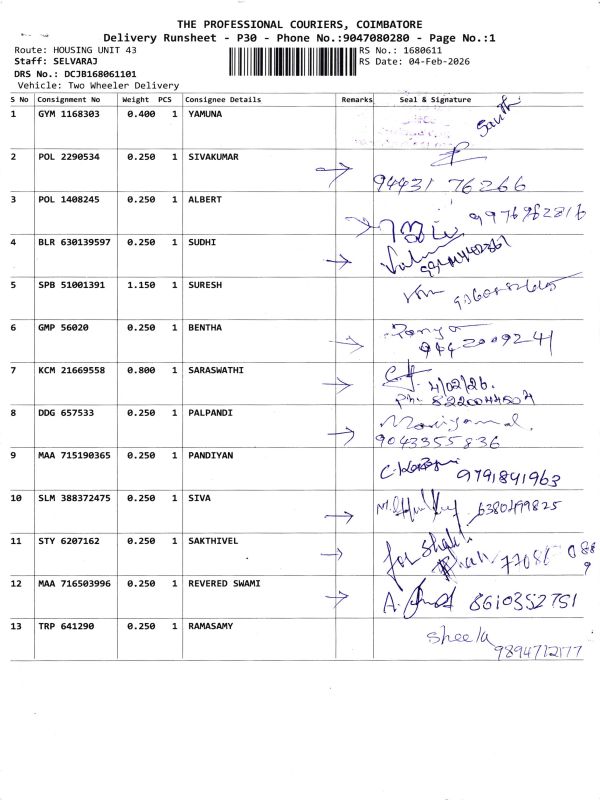 THE PROFESSIONAL COURIERS, COIMBATORE
Delivery Runsheet - P30 - Phone No.:9047080280 - Page No.:1
Route: HOUSING UNIT 43
RS No.: 1680611
Staff: SELVARAJ
RS Date: 04-Feb-2026
DRS No.: DCJB168061101
Vehicle: Two Wheeler Delivery
S No Consignment No Weight PCS Consignee Details Remarks Seal & Signature
1 GYM 1168303 0.400 1 YAMUNA
2 POL 2290534 0.250 1 SIVAKUMAR
94431 76266
3 POL 1408245 0.250 1 ALBERT
9976982816
4 BLR 630139597 0.250 1 SUDHI
5 SPB 51001391 1.150 1 SURESH
6 GMP 56020 0.250 1 BENTHA
Ramya
9442009241
7 KCM 21669558 0.800 1 SARASWATHI
4/02/26.
Ph: 8220044504
8 DDG 657533 0.250 1 PALPANDI
Mariyamal.
9043355836
9 MAA 715190365 0.250 1 PANDIYAN
9791841963
10 SLM 388372475 0.250 1 SIVA
6380499825
11 STY 6207162 0.250 1 SAKTHIVEL
for Shakti.
12 MAA 716503996 0.250 1 REVERED SWAMI
8610352751
13 TRP 641290 0.250 1 RAMASAMY
Sheela
9894712177